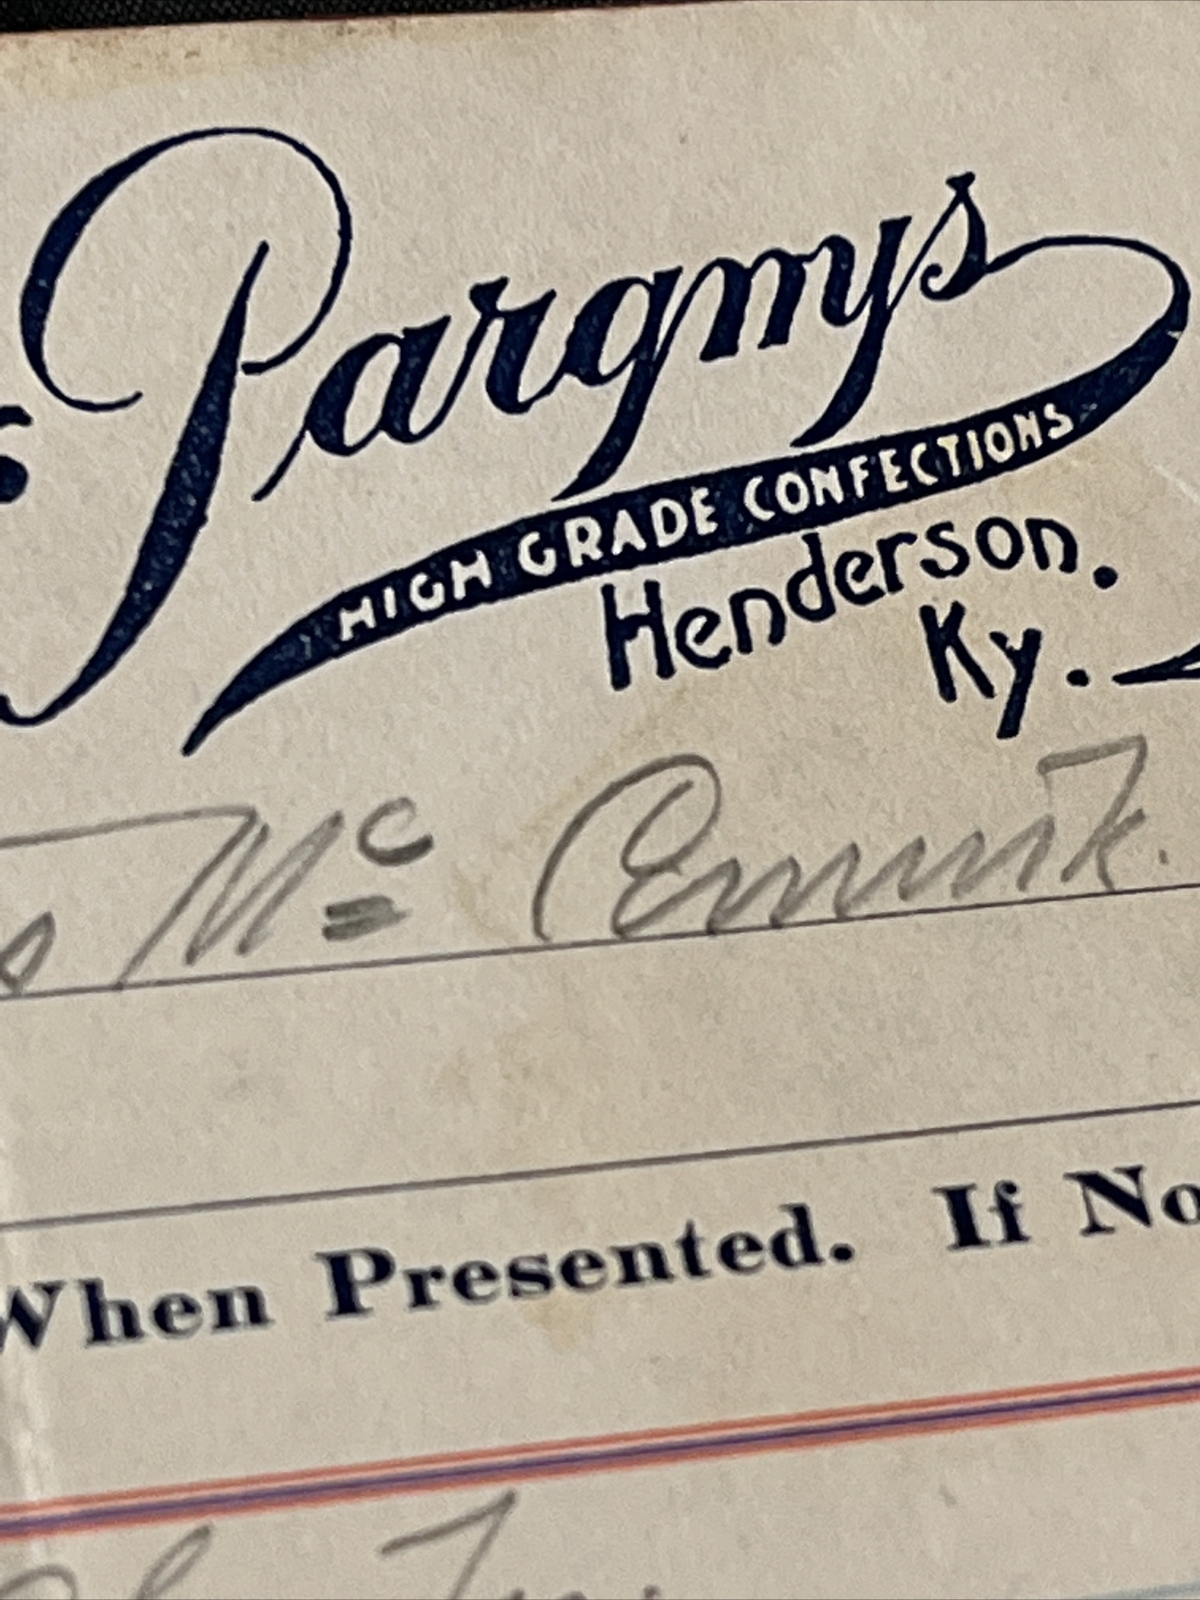 Pargnys
HIGH GRADE CONFECTIONS
Henderson.
Ky.
Mc
When Presented. If No